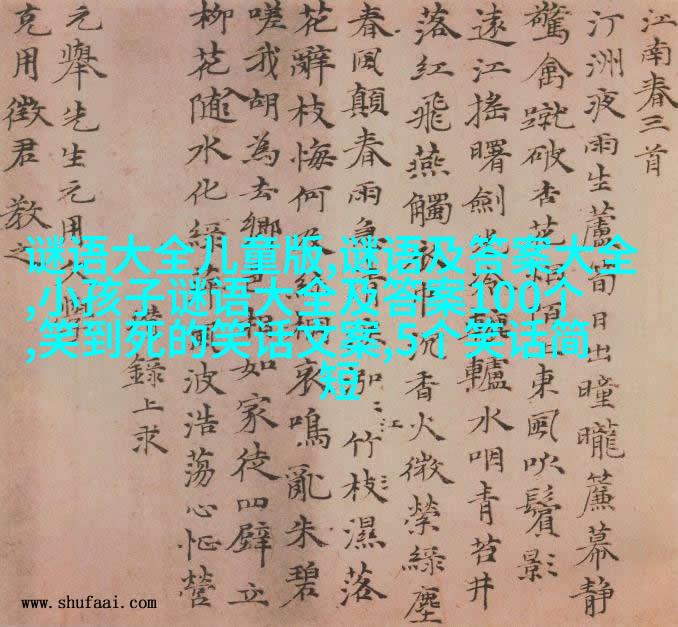 江南春三首
汀洲夜雨生蘆筍日出曈曨簾幕静
驚禽蹴破杏花烟陌上東風吹鬢影
遠江搖曙劍轤水咽青苔井
落紅飛燕觸衣巾沉香火微縈綠塵
春風顛春雨急清泓竹枝濕落
江
花辭枝悔何及絲桐哀鳴亂朱碧
嗟我胡為去鄉邑相如家徒四壁立
柳花隨水化綠萍風波浩蕩心怔營
瓚錄上求
元舉先生元用文學
克用徵君教之
谜语大全儿童版,谜语及答案大全
,小孩子谜语大全及答案100个
,笑到死的笑话文案,5个笑话简
短
www.shufaai.com